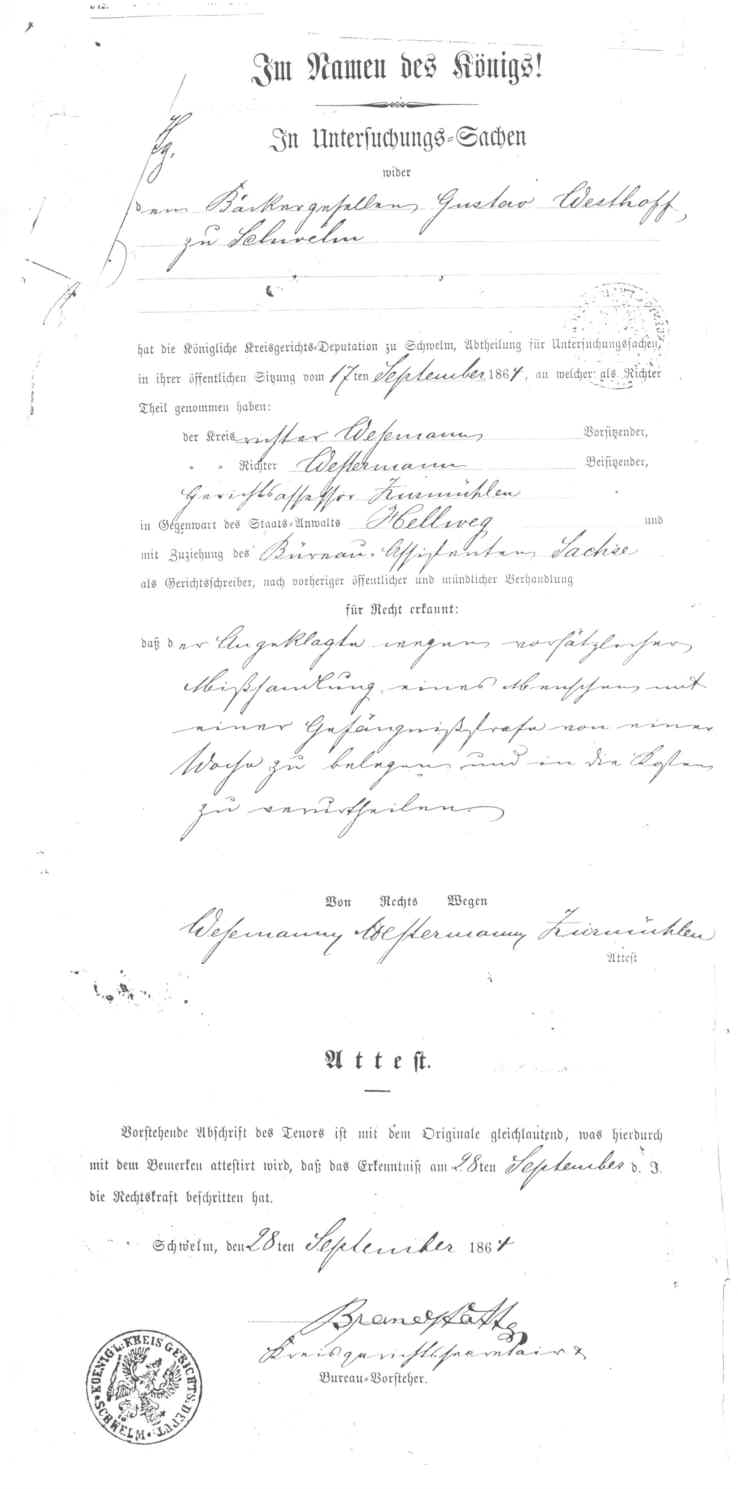 Im Namen des Königs!
In Untersuchungs-Sachen
wider
den Bäckergesellen Gustav Westhoff,
zu Schwelm
hat die Königliche Kreisgerichts-Deputation zu Schwelm, Abtheilung für Untersuchungssachen,
in ihrer öffentlichen Sitzung vom 17ten September 1864, an welcher als Richter
Theil genommen haben:
der Kreisrichter Wesemann Vorsitzender,
" " Richter Westermann Beisitzender,
Gerichtsassessor Zurmühlen "
in Gegenwart des Staats-Anwalts Hellweg und
mit Zuziehung des Büreau-Assistenten Sachse
als Gerichtschreiber, nach vorheriger öffentlicher und mündlicher Verhandlung
für Recht erkannt:
daß der Angeklagte wegen vorsätzlicher
Mißhandlung eines Menschen mit
einer Gefängnißstrafe von einer
Woche zu belegen und in die Kosten
zu verurtheilen.
Von Rechts Wegen
Wesemann Westermann Zurmühlen
Attest
Attest.
Vorstehende Abschrift des Tenors ist mit dem Originale gleichlautend, was hierdurch
mit dem Bemerken attestirt wird, daß das Erkenntniß am 28ten September d. J.
die Rechtskraft beschritten hat.
Schwelm, den 28ten September 1864
Kreisgerichtssecretair &
Bureau-Vorsteher.
KOENIGL. KREIS GERICHTS. DEPUT.
SCHWELM